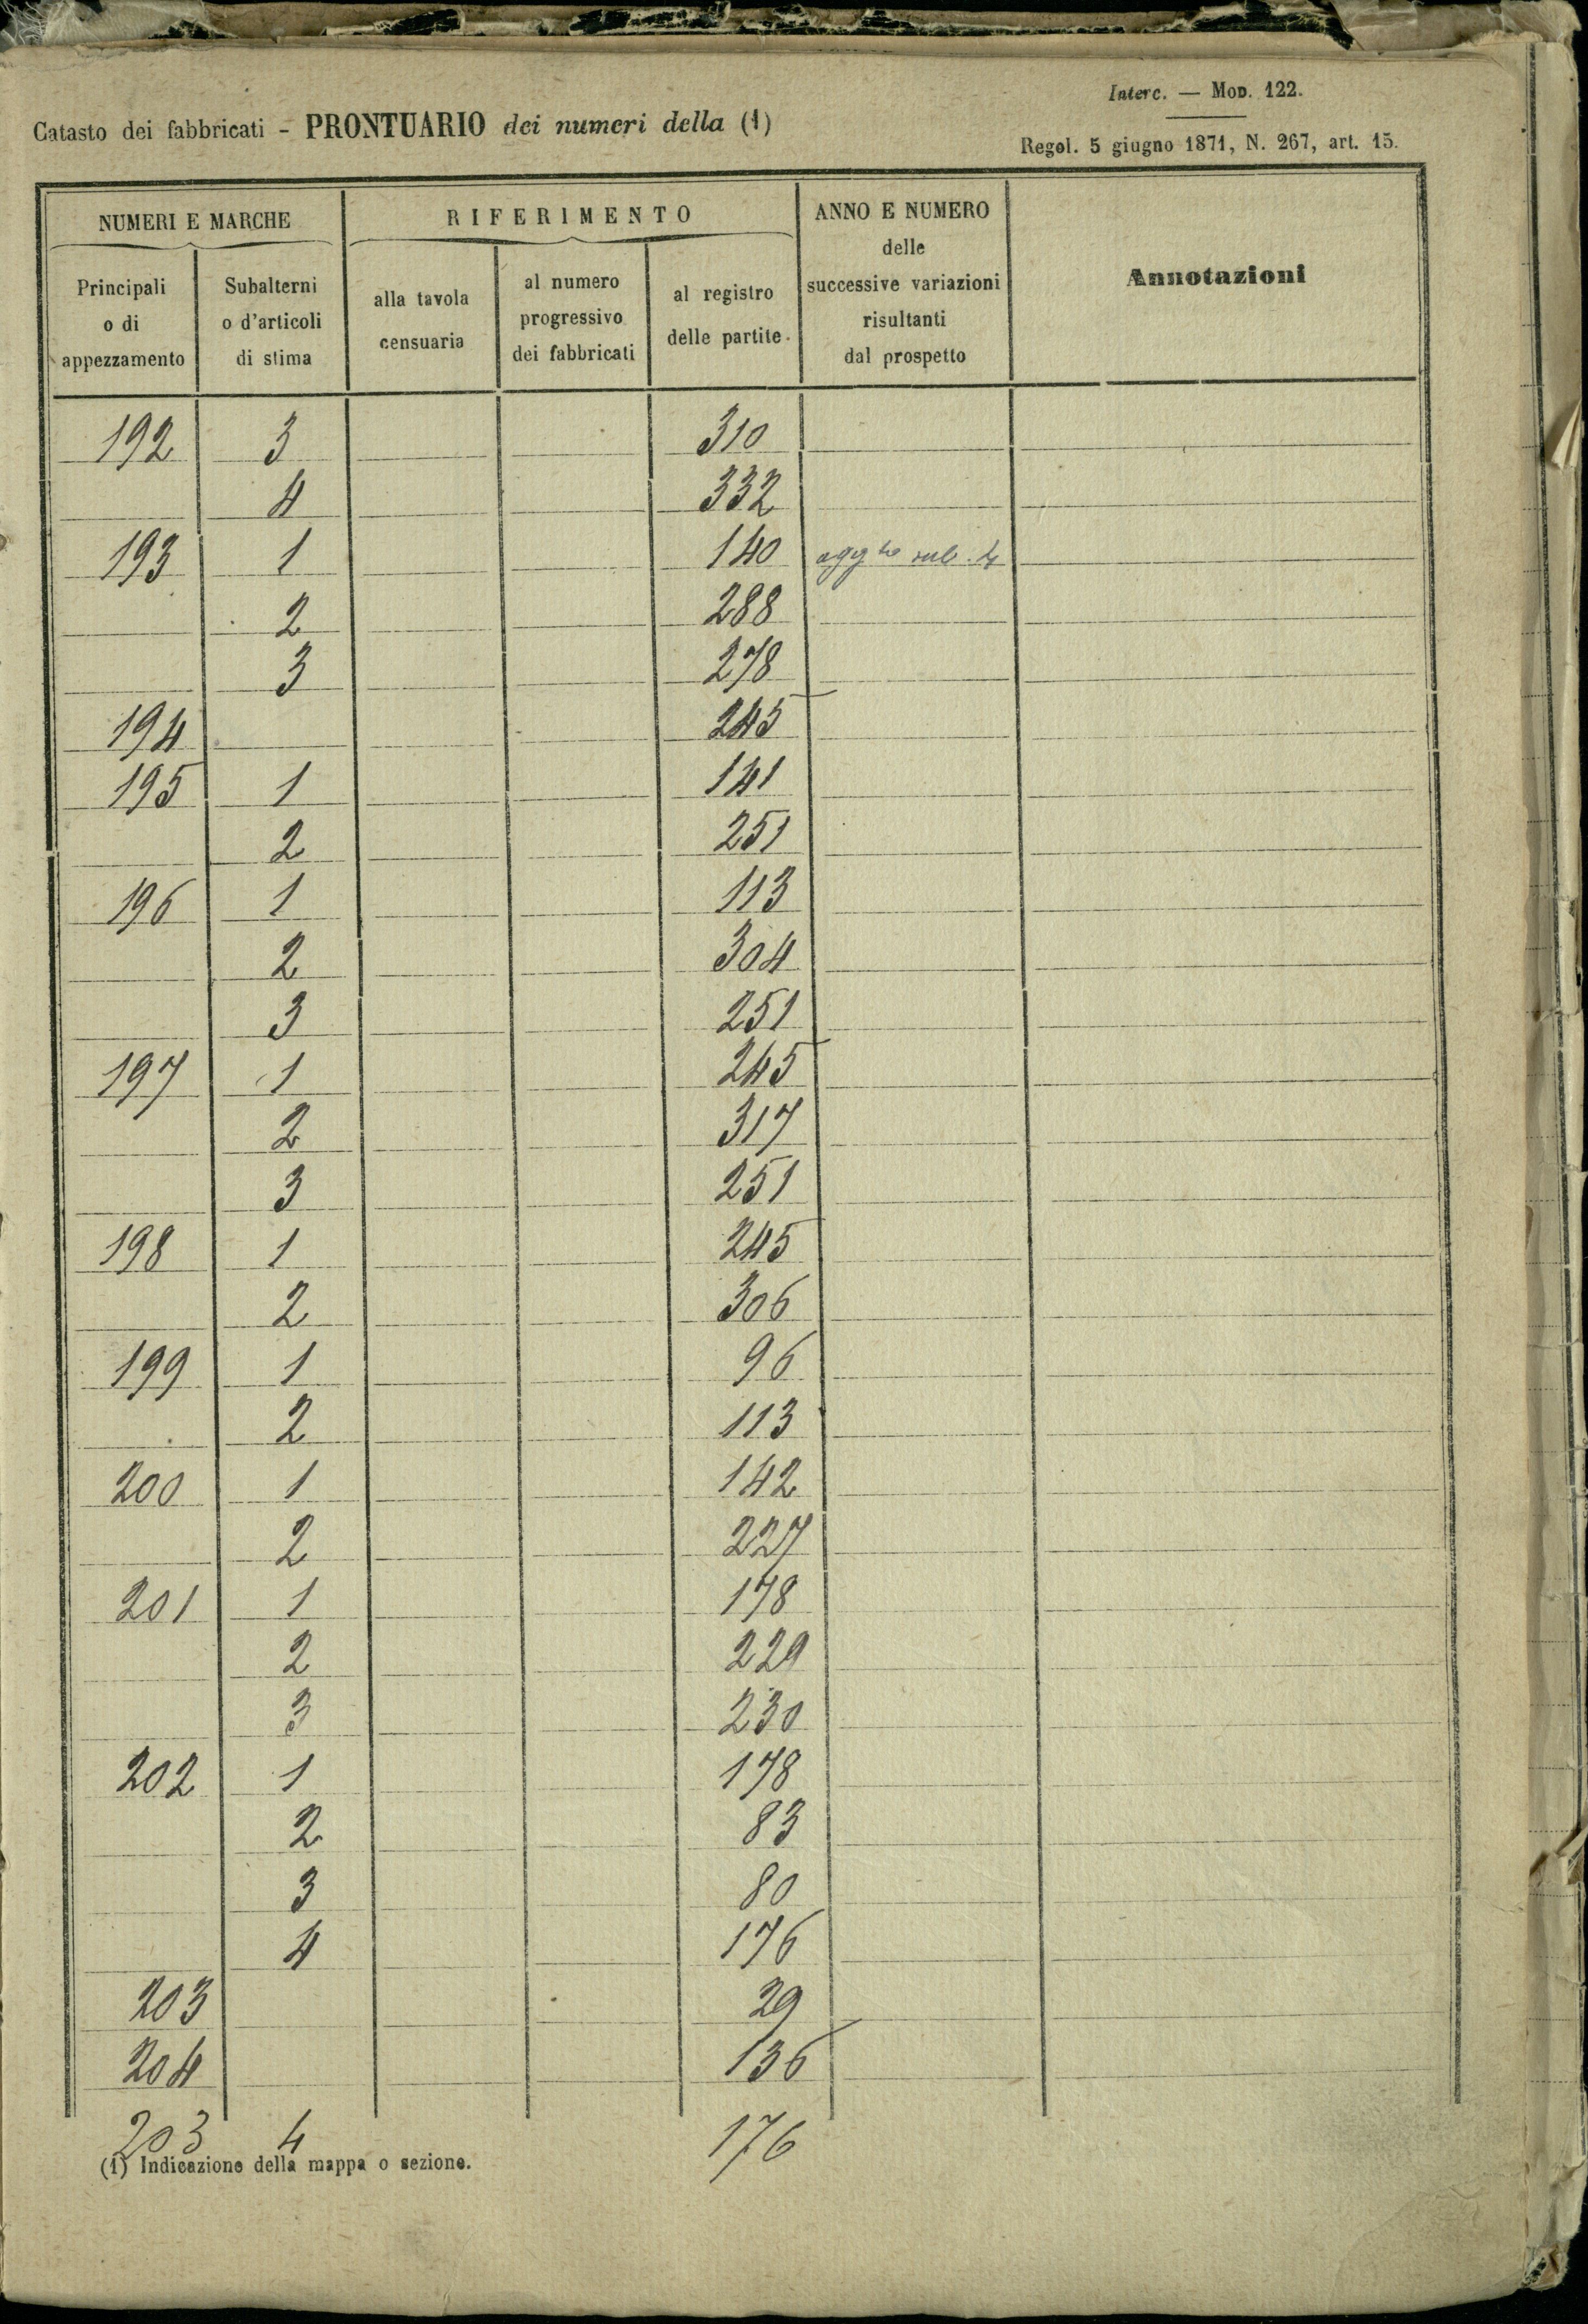 Interc. — Mod. 122.
Catasto dei fabbricati - PRONTUARIO dei numeri della (1)
Regol. 5 giugno 1871, N. 267, art. 15.
NUMERI E MARCHE
RIFERIMENTO
ANNO E NUMERO
delle
successive variazioni
risultanti
dal prospetto
Annotazioni
Principali
o di
appezzamento
Subalterni
o d'articoli
di stima
alla tavola
censuaria
al numero
progressivo
dei fabbricati
al registro
delle partite
192 3 310
4 332
193 1 140 sub. 4
2 288
3 278
194 245
195 1 141
2 251
196 1 113
2 304
3 251
197 1 245
2 317
3 251
198 1 245
2 306
199 1 96
2 113
200 1 142
2 227
201 1 178
2 229
3 230
202 1 178
2 83
3 80
4 176
203 29
204 136
203 4 176
(1) Indicazione della mappa o sezione.